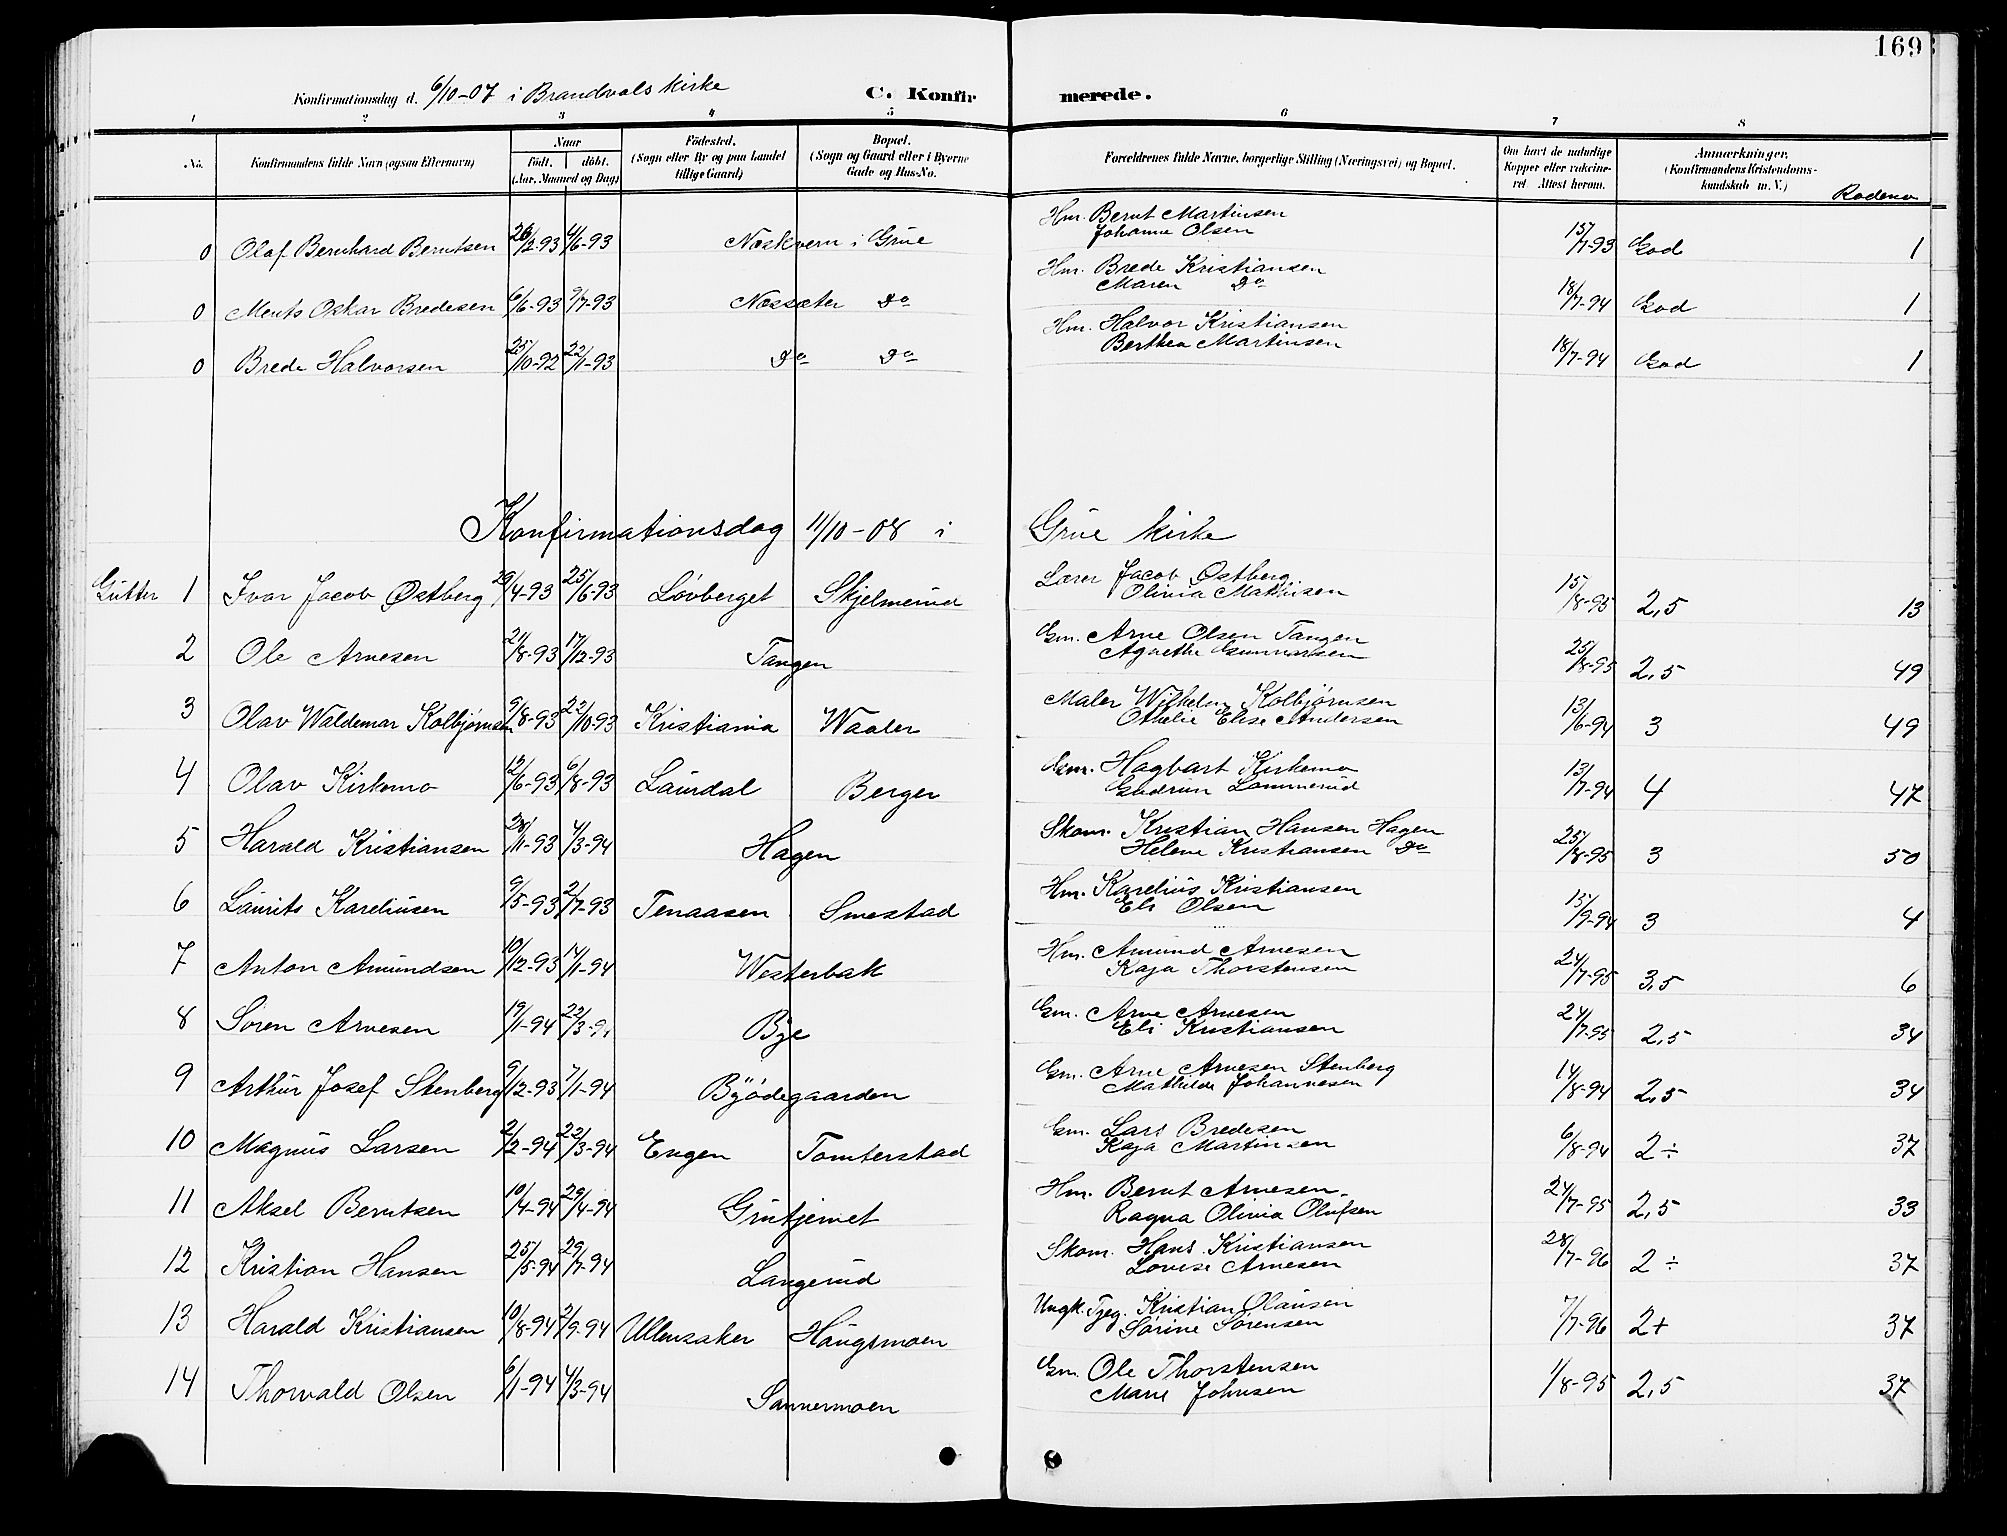 169
Konfirmationsdag d. 6/10-07 i Brandvals kirke C. Konfirmerede.
1 2 3 4 5 6 7 8
No. Konfirmandens fulde Navn (ogsaa Efternavn) Naar født. døbt. (Aar, Maaned og Dag) Födested. (Sogn eller By og paa Landet tillige Gaard) Bopæl. (Sogn og Gaard eller i Byerne Gade og Hus-No. Forældrenes fulde Navne, borgerlige Stilling (Næringsvei) og Bopæl. Om havt de naturlige Kopper eller vakcineret. Attest herom. Anmærkninger. (Konfirmandens Kristendomskundskab m. V.) Rodeno
0 Olaf Bernhard Berntsen 26/2-93 4/6-93 Næskvern i Grue Hm. Bernt Martinsen 15/7-93 God 1
Johanne Olsen
0 Ments Oskar Bredesen 6/6-93 9/7-93 Næssæter do Hm. Brede Kristiansen 18/7-94 God 1
Maren do
0 Brede Halvorsen 25/10-92 22/1-93 do do Hm. Halvor Kristiansen 18/7-94 God 1
Berthea Martinsen
Konfirmationsdag 11/10-08 i Grue kirke
Gutter 1 Ivar Jacob Østberg 29/4-93 25/6-93 Løvberget Skjelmerud Lærer Jacob Østberg 15/8-95 2,5 13
Olivia Mathisen
2 Ole Arnesen 21/8-93 17/12-93 Tangen Gm. Arne Olsen Tangen 25/8-95 2,5 49
Agnethe Gunnarsen
3 Olav Waldemar Kolbjørnsen 9/8-93 22/10-93 Kristiania Waaler Maler Wilhelm Kolbjørnsen 13/6-94 3 49
Othelie Elise Andersen
4 Olav Kirkemo 12/6-93 6/8-93 Laurdal Berger Gm. Hagbart Kirkemo 13/7-94 4 47
Gudrun Lommerud
5 Harald Kristiansen 28/11-93 4/3-94 Hagen Skom. Kristian Hansen Hagen 25/8-95 3 50
Helene Kristiansen do
6 Laurits Kareliusen 9/5-93 2/7-93 Tenaasen Smestad Hm. Karelius Kristiansen 15/9-94 3 4
Eli Olsen
7 Anton Amundsen 10/12-93 14/1-94 Westerbak Hm. Amund Arnesen 24/7-95 3,5 6
Kaja Thorstensen
8 Søren Arnesen 19/1-94 22/3-9 Bye Gm. Arne Arnesen 24/7-95 2,5 34
Eli Kristiansen
9 Arthur Josef Stenberg 9/12-93 7/1-94 Byödegaarden Gm. Arne Arnesen Stenberg 14/8-94 2,5 34
Mathilde Johannesen
10 Magnus Larsen 2/2-94 22/3-94 Engen Tomterstad Gm. Lars Bredesen 6/8-94 2÷ 37
Kaja Martinsen
11 Aksel Berntsen 10/4-94 29/4-94 Grutjernet Hm. Bernt Arnesen 24/7-95 2,5 33
Ragna Olivia Olufsen
12 Kristian Hansen 25/5-94 29/7-94 Langerud Skom. Hans Kristiansen 28/7-96 2÷ 37
Lovise Arnesen
13 Harald Kristiansen 10/8-94 2/9-94 Ullensaker Haugsmoen Ungk. Tjeg. Kristian Olausen 7/7-96 2+ 37
Sørine Sørensen
14 Thorvald Olsen 6/1-94 4/3-94 Sannermoen Gm. Ole Thorstensen 1/8-95 2,5 37
Marie Johnsen